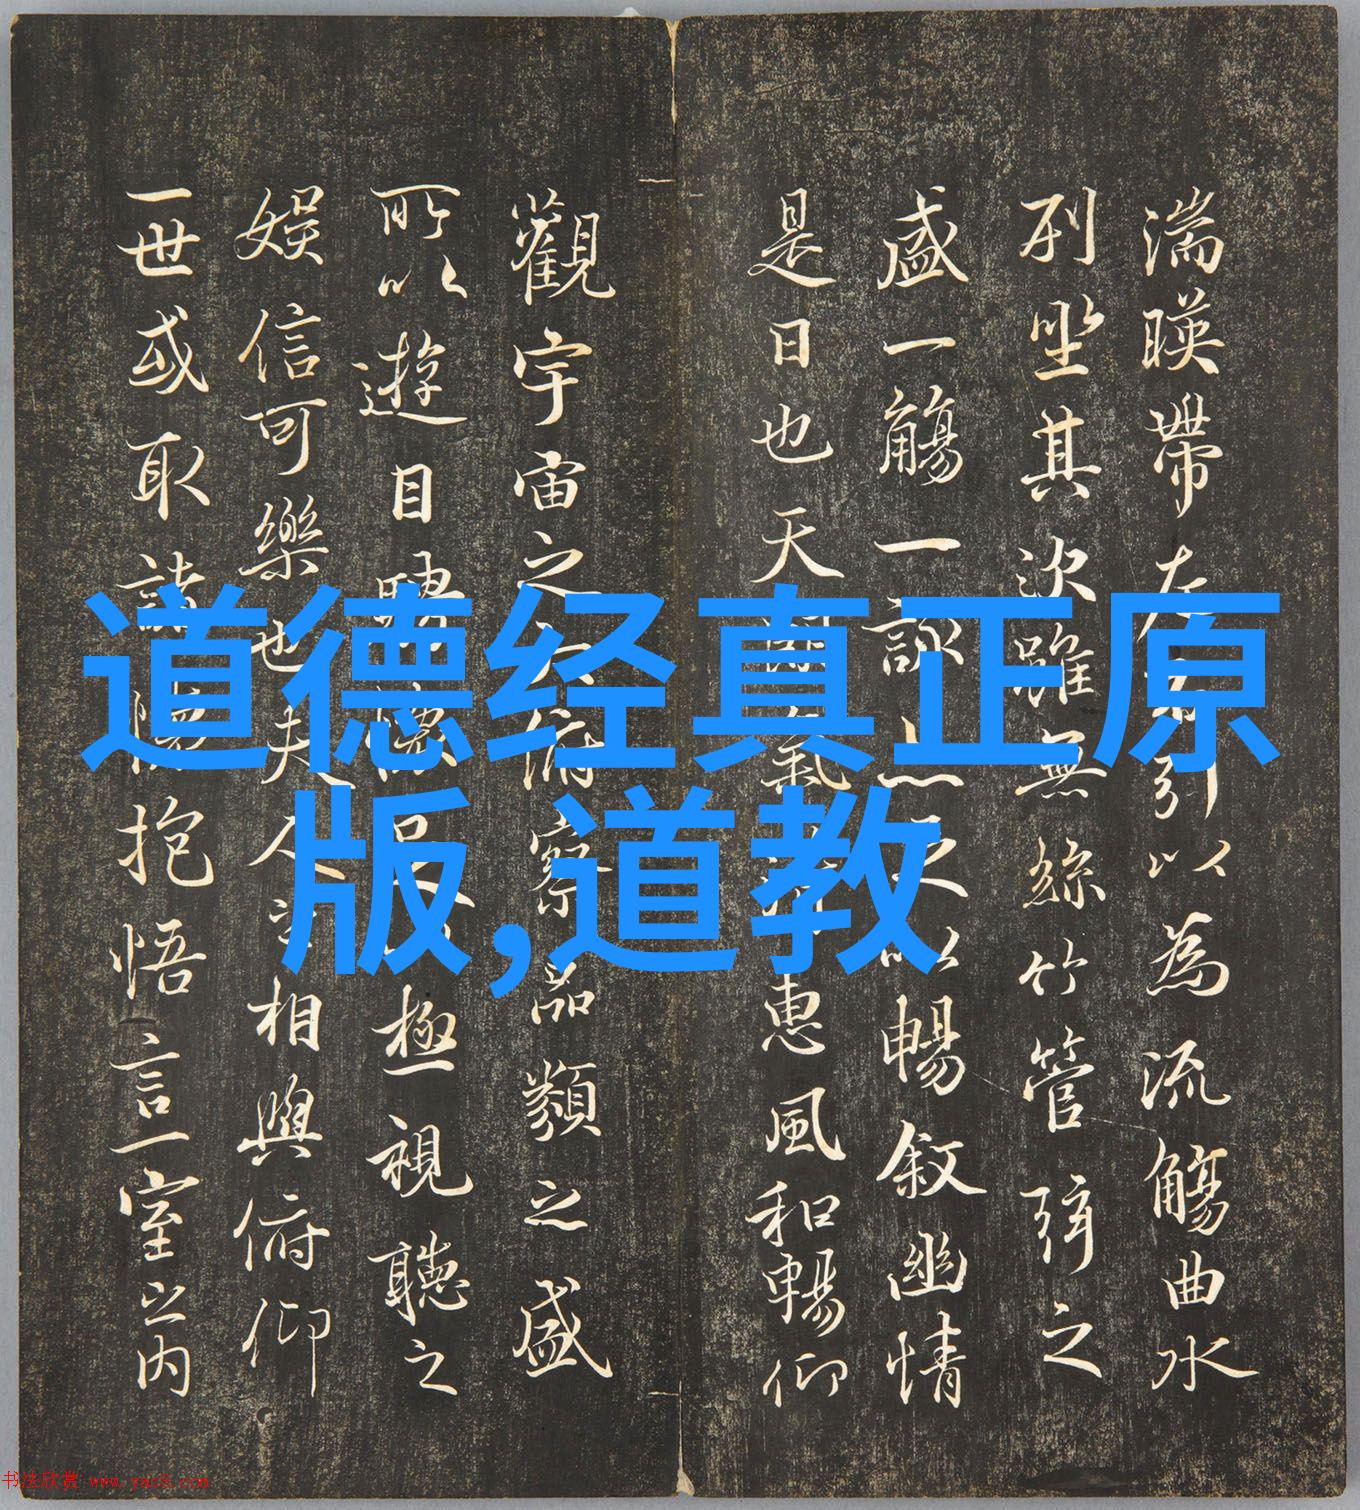 道德经真正原
版,道教
湍暎帶左右引以為流觴曲水
列坐其次雖無絲竹管弦之
盛一觴一詠亦足以暢敘幽情
是日也天朗氣清惠風和暢仰
觀宇宙之大俯察品類之盛
所以遊目騁懷足以極視聽之
娛信可樂也夫人之相與俯仰
一世或取諸懷抱悟言一室之內
书法欣赏 www.yac8.com